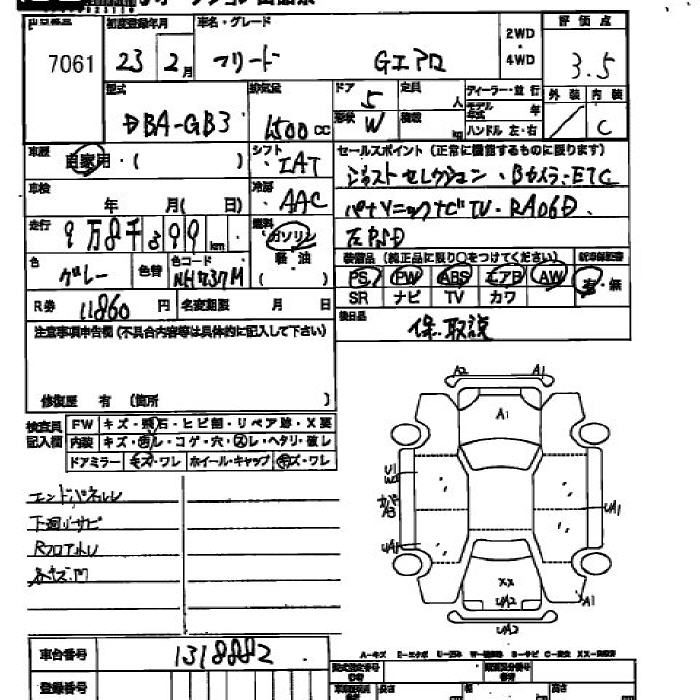 出品番号 初度登録年月 車名・グレード 2WD・4WD 評価点
7061 23年 2月 フリード Gエアロ 3.5
型式 排気量 ドア 定員 ディーラー・並行 外装 内装
DBA-GB3 1500CC 5 人 モデル年式 年 C
形状 W 積載 kg ハンドル 左・右
車歴 自家用・( ) シフト IAT セールスポイント(正常に機能するものに限ります)
車検 年 月( 日) 冷房 AAC ジャストセレクション、Bカメラ・ETC
走行 9万8千399km 燃料 ガソリン パナソニックナビTV・RA06D、
軽油 左PSD
色 グレー 色替 色コード NH737M ( ) 装備品(純正品に限り○をつけてください) 新車保証書
PS PW ABS エアB AW 有・無
SR ナビ TV カワ
R券 11860円 名変期限 月 日 後日品
保、取説
注意事項申告欄(不具合内容等は具体的に記入して下さい)
修復歴 有(箇所 )
検査員記入欄 FW キズ・飛石・ヒビ割・リペア跡・X要
内装 キズ・汚レ・コゲ・穴・スレ・ヘタリ・破レ
ドアミラー キズ・ワレ ホイール・キャップ キズ・ワレ
エンドパネルU
下廻りサビ
RフロアU
各キズ、凹
A2 A1
A1
U1
A3
UA1
UA1
XX
UA2
A1
UA2
A-キズ E-エクボ U-凹み W-補修跡 S-サビ C-腐食 XX-交換済
車台番号 1318882
登録番号
型式指定番号 類別区分番号
長さ cm 幅 cm 高さ cm